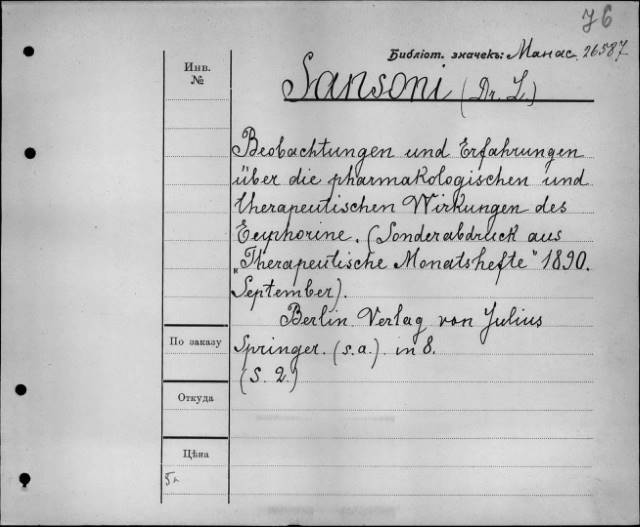 76
Библіот. значекъ: Манас. 26587
Инв.
№
Sansoni (Dr. L.)
Beobachtungen und Erfahrungen
über die pharmakologischen und
therapeutischen Wirkungen des
Eeuphorine. (Sonderabdruck aus
„Therapeutische Monatshefte" 1890.
September).
Berlin. Verlag von Julius
По заказу
Springer. (s.a.). in 8.
(S. 2.)
Откуда
Цѣна